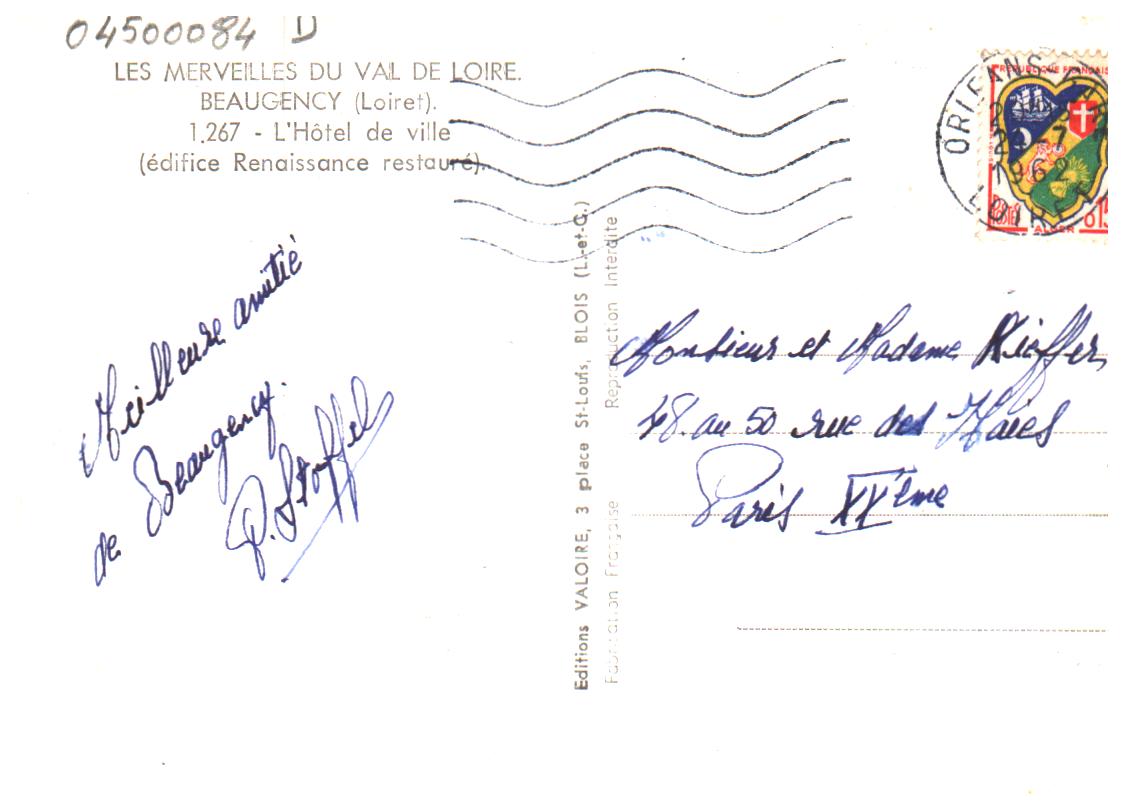 04500084 D
LES MERVEILLES DU VAL DE LOIRE.
BEAUGENCY (Loiret).
1.267 - L'Hôtel de ville
(édifice Renaissance restauré).
Meilleure amitié
de Beaugency.
P. Stoffel
Editions VALOIRE, 3 place St-Louis, BLOIS (L.-et-C.)
Fabrication Française Reproduction Interdite
REPUBLIQUE FRANÇAIS
POSTES
ALGER
0,15
ORLEANS-GARE
1962
LOIRET
Monsieur et Madame Kieffer
48 au 50 rue des Haies
Paris XXème